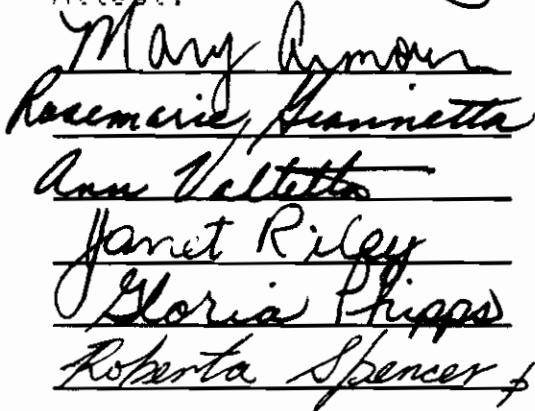 Mary Armour
Rosemarie Giannetta
Ann Valtetto
Janet Riley
Gloria Phipps
Roberta Spencer